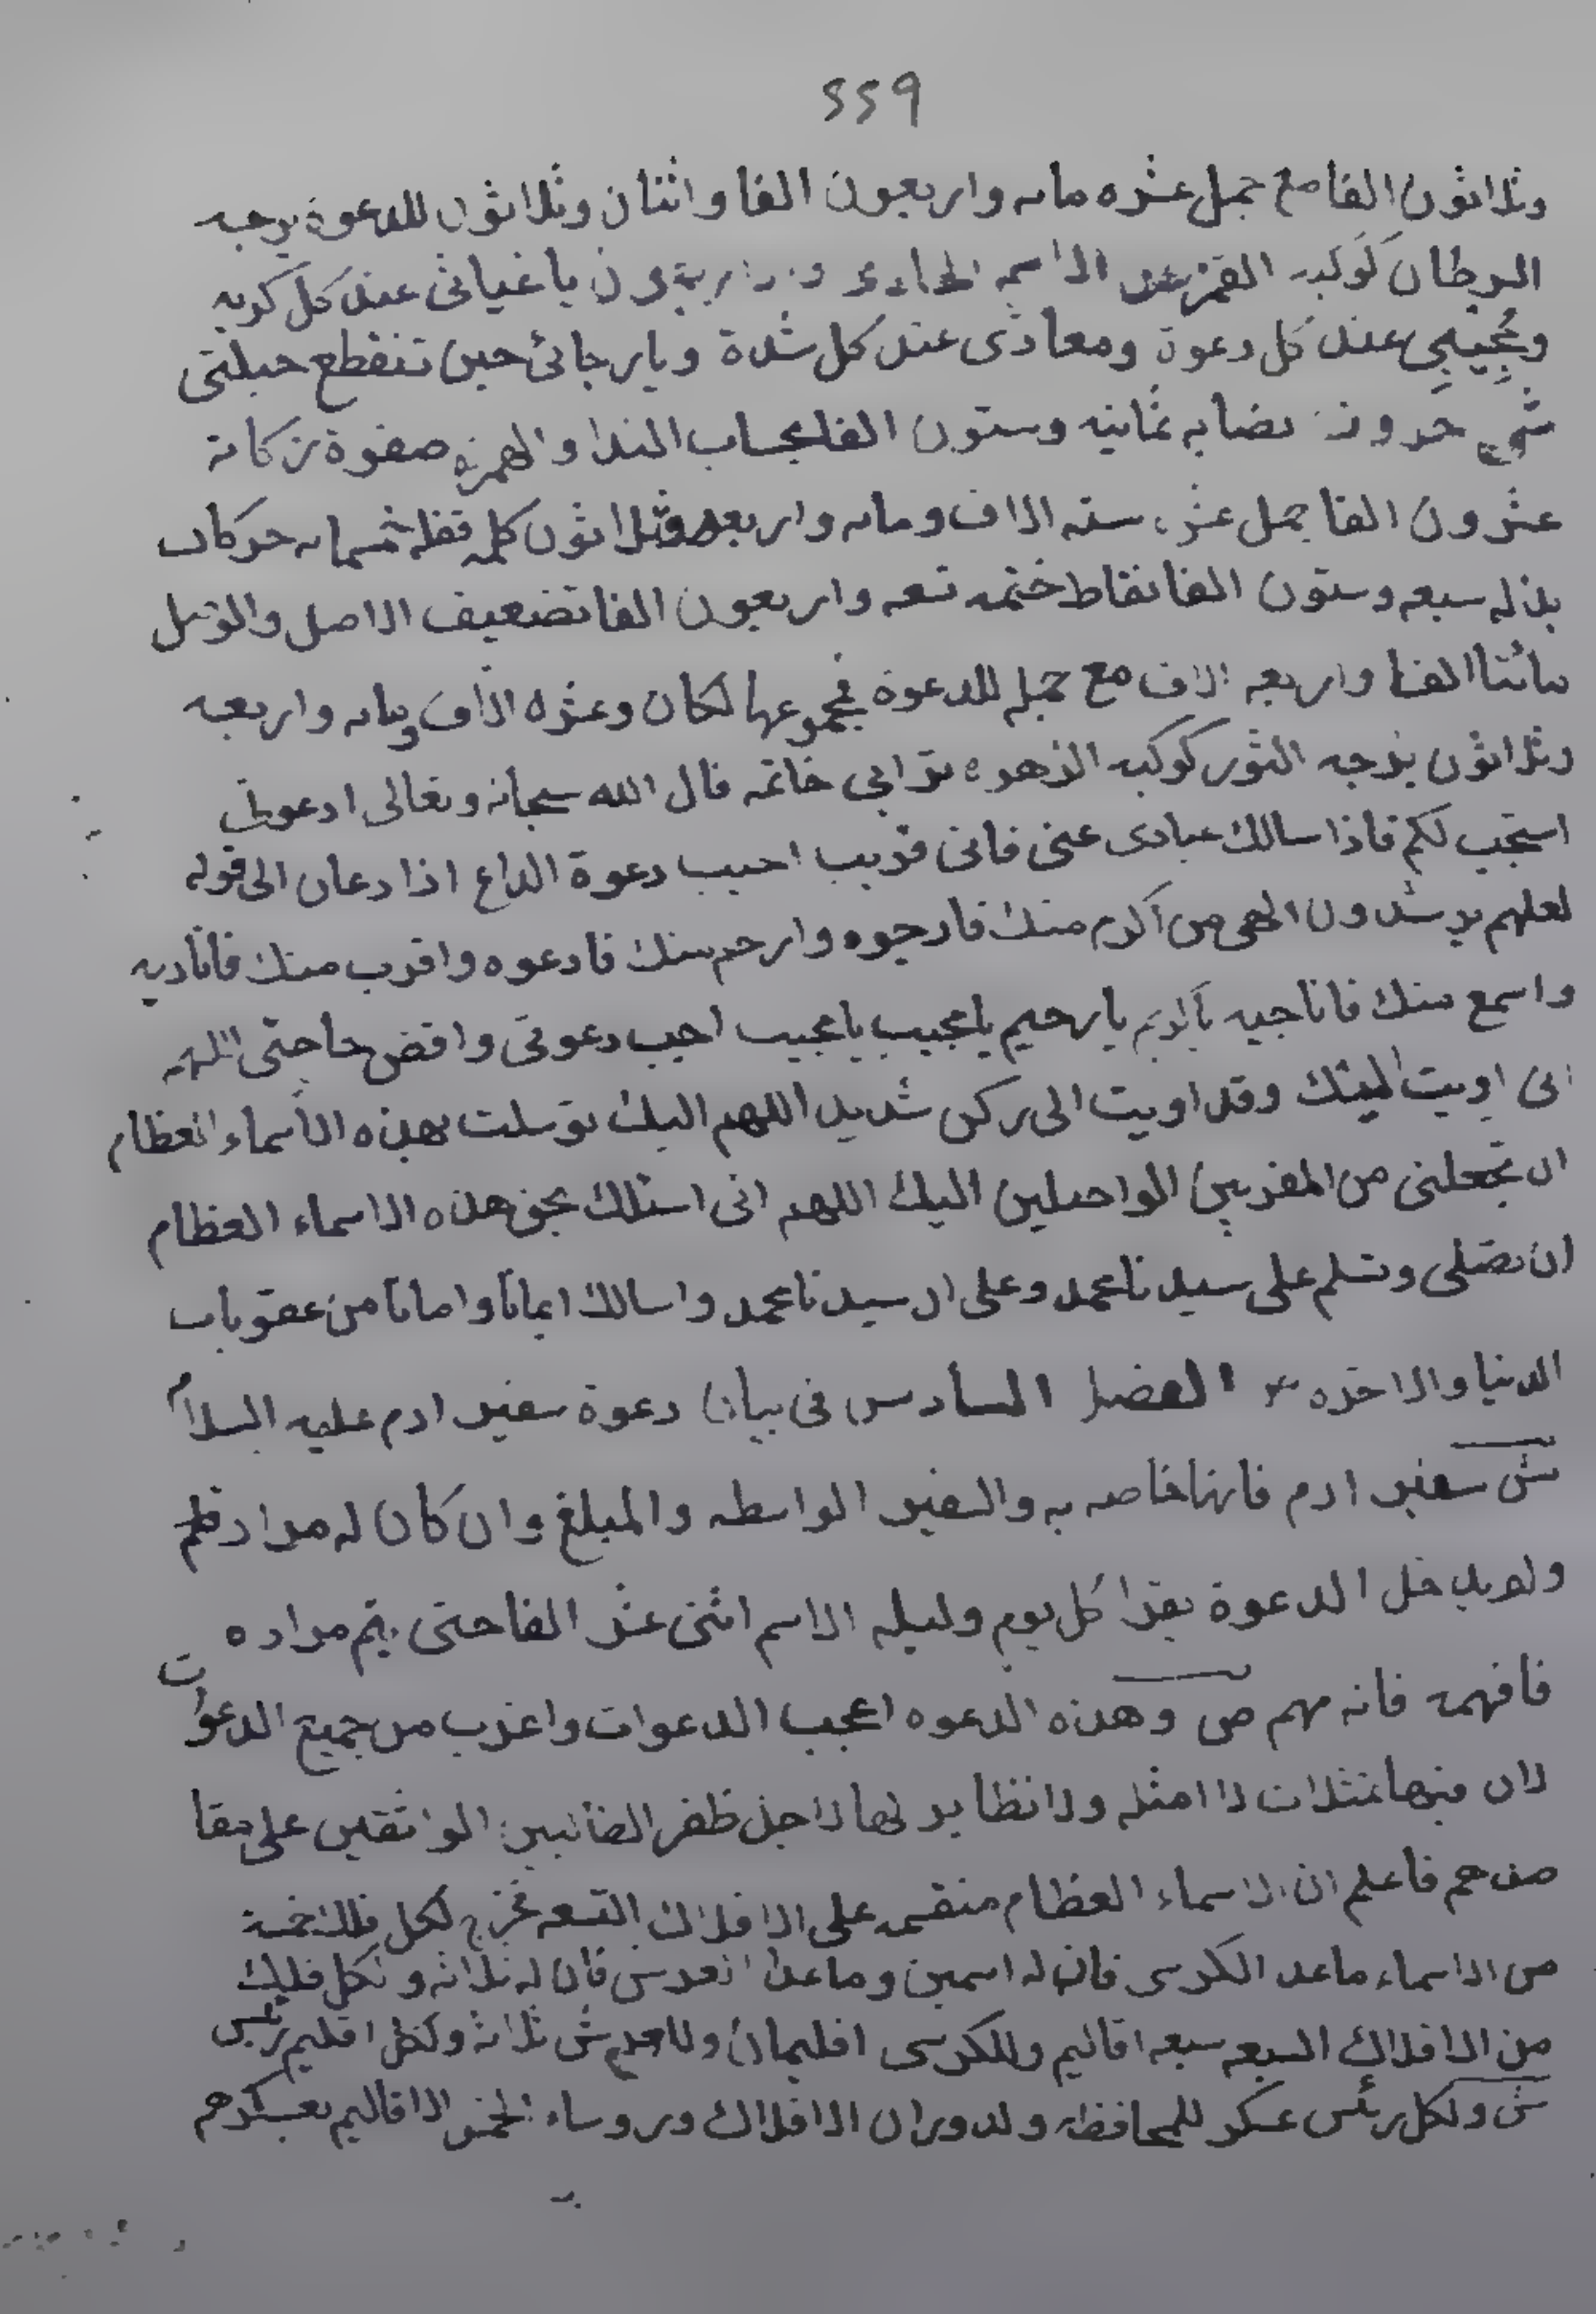 ٢٢٩
وثلاثون الفا مع جمل عشره مايه واربعون الفا واثنان وثلاثون للدعوة برجه
السرطان كوكبه القمر الاسم الحادى يا غياثى عند كل كربه
ومجيبى عند كل دعوة ومعاذى عند كل شدة ويا رجائى حين تنقطع حيلتى
ش حروف نصابه ثمانيه وستون الفا بحساب الندا والهمزه صفوة زكاته
عشرون الفا جمل عشر سته الاف ومايه واربعه وثلاثون كلمه قفله خمسمايه حركات
بذله سبعه وستون الفا نقاط ختمه تسعه واربعون الفا تضعيف الاصل والوتيل
مائتا الفا واربعه الاف مع جمله للدعوة فمجموعها لكان وعشره الاف ومايه واربعه
وثلاثون برجه الثور كوكبه الزهره ترابى خاتمه قال الله سبحانه وتعالى ادعونى
استجب لكم فاذا سالك عبادى عنى فانى قريب اجيب دعوة الداع اذا دعان الى قوله
لعلهم يرشدون الهى من اكرم منك فارجوه وارحم منك فادعوه واقرب منك فاناديه
واسمع منك فاناجيه يا كريم يا رحيم يا مجيب يا مجيب اجب دعوتى واقض حاجتى اللهم
انى اويت اليك وقد اويت الى ركن شديد اللهم اليك توسلت بهذه الاسماء العظام
ان تجعلنى من المقربين الواصلين اليك اللهم انى اسئلك بحق هذه الاسماء العظام
ان تصلى وتسلم على سيدنا محمد وعلى ال سيدنا محمد واسالك ايمانا وامانا من عقوبات
الدنيا والاخره الفصل السادس فى بيان دعوة سفير ادم عليه السلام
ش سفير ادم فانها خاصه به والسفير الواسطه والمبلغ وان كان له مراد
ولم يدخل الدعوة يقرا كل يوم وليله الاسم اثنى عشر الفا حتى يتم مراده
فافهمه فانه مهم ص وهذه الدعوه اعجب الدعوات واغرب من جميع الدعوات
لان فيها تمثلات لا امثله ولا نظاير لها لاجل ظفر الغائبين الواثقين على مقا
صدهم فاعلم ان الاسماء العظام منقسمه على الافلاك التسعه فخرج لكل فلك خمسة
من الاسماء ماعد الكرسى فان له اسمين وماعدا العرش فان له ثلاثه ولكل فلك
من الافلاك السبعه سبعه اقاليم وللكرسى اقليمان وللعرش ثلاثة ولكل اقليم رئيس
ش ولكل رئيس عسكر للمحافظه ولدوران الافلاك وروساء الاقاليم بعسكرهم